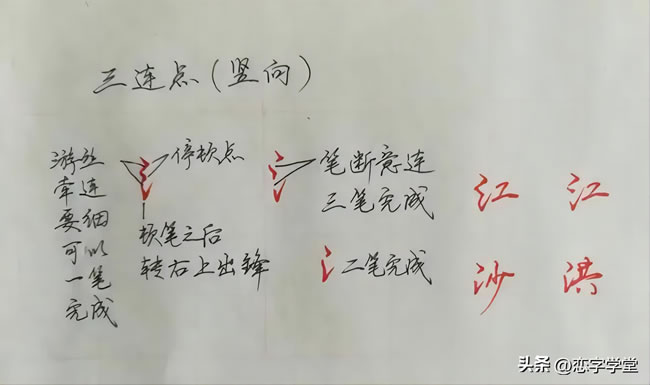 三连点(竖向)
游丝
牵连
要细
可以
一笔
完成
停顿点
顿笔之后
转右上出锋
笔断意连
三笔完成
二笔完成
江 江
沙 洪
头条 @恋字学堂